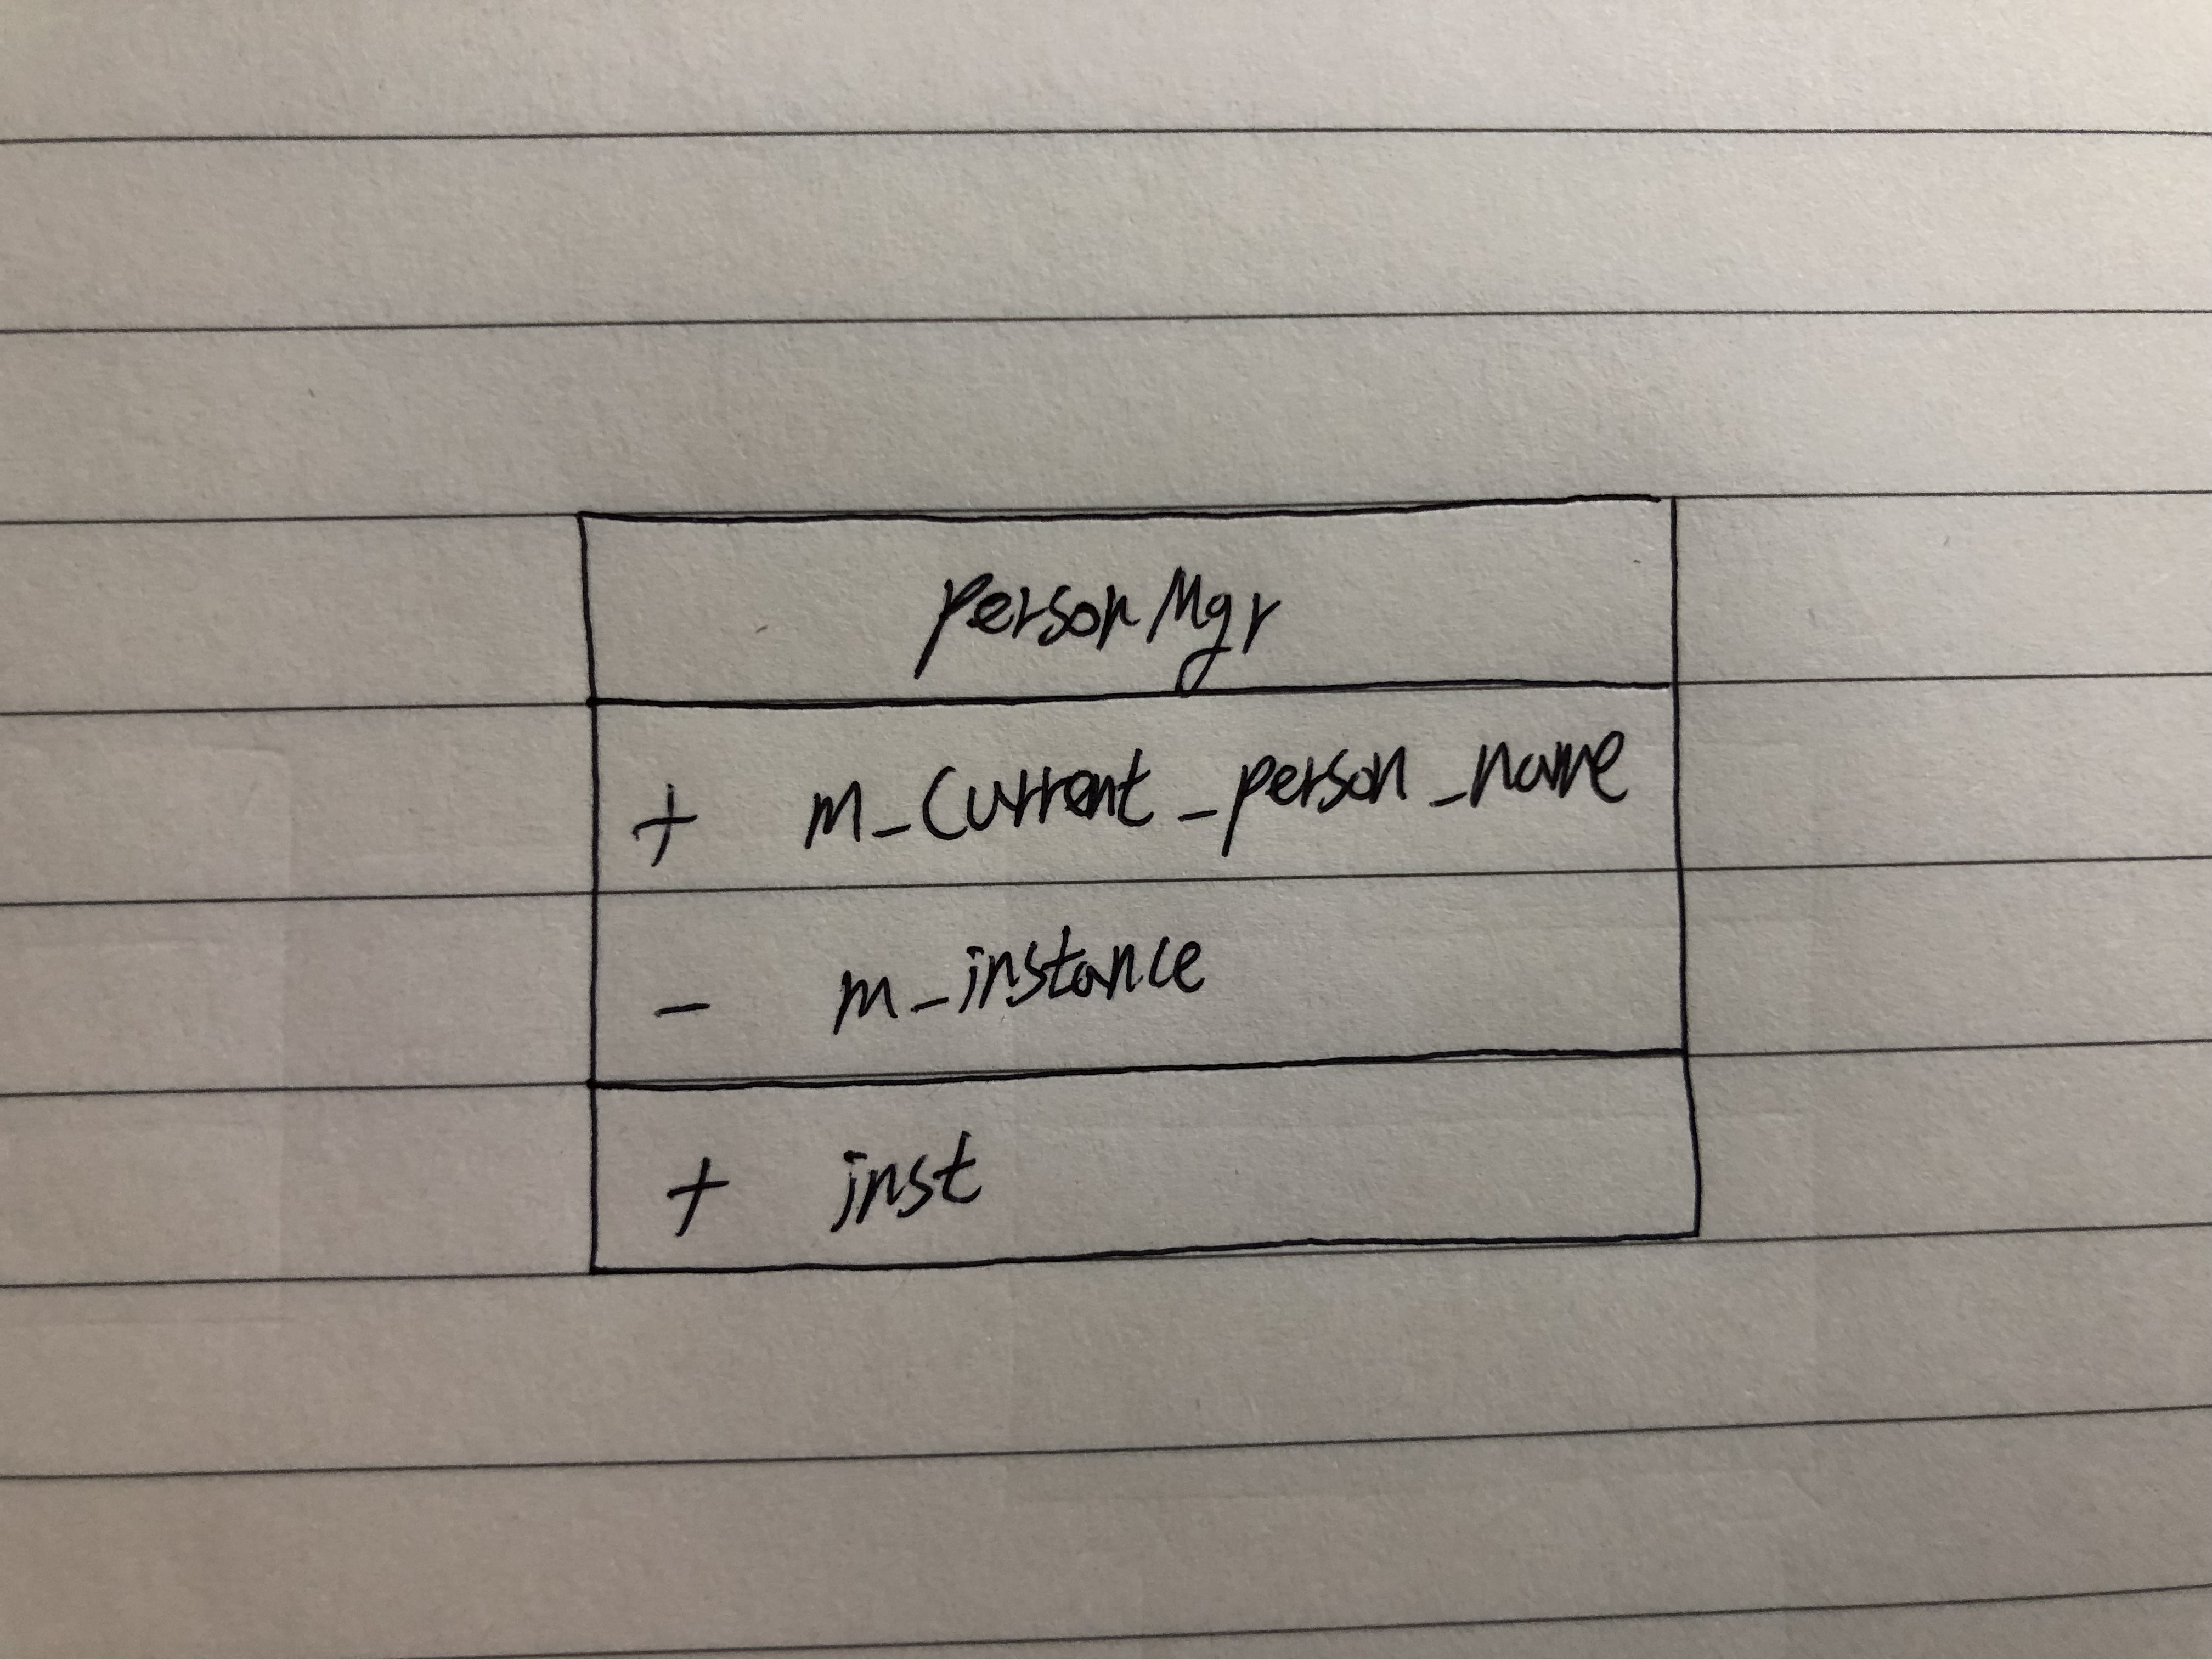 PersonMgr
+ m_Current_person_name
- m_instance
+ inst